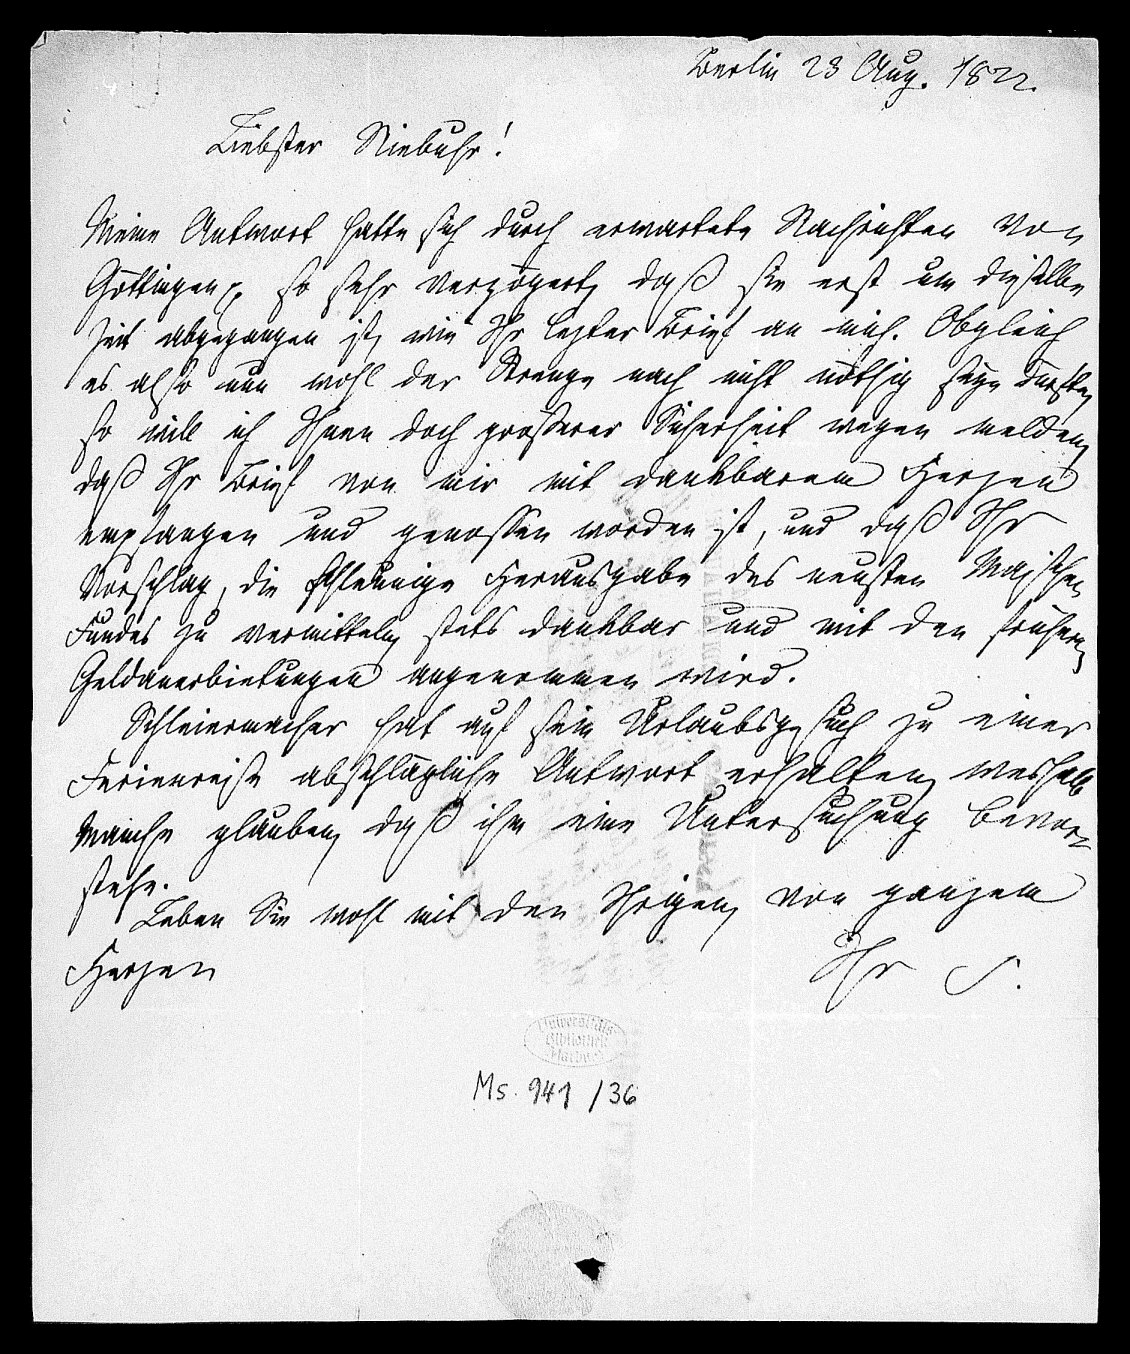 Berlin 23 Aug. 1822.
Liebster Niebuhr!
Meine Antwort hatte sich durch erwartete Nachrichten von
Göttingen, so sehr verzögert, daß sie erst um dieselbe
Zeit abgegangen ist, wie Ihr lezter Brief an mich. Obgleich
es also nun wohl der Strenge nach nicht nöthig seyn dürfte,
so will ich Ihnen doch größerer Sicherheit wegen melden,
daß Ihr Brief von mir mit dankbarem Herzen
empfangen und genossen worden ist, und daß Ihr
Vorschlag, die schleunige Herausgabe des neusten Maischen
Fundes zu vermitteln, stets dankbar und mit den frühern
Geldanerbietungen angenommen wird.
Schleiermacher hat auf sein Urlaubsgesuch zu einer
Ferienreise abschlägliche Antwort erhalten, weshalb
Manche glauben, daß ihm eine Untersuchung bevor-
stehe.
Leben Sie wohl mit den Ihrigen, von ganzem
Herzen
Ihr S.
Universitäts
Bibliothek
Marburg
Ms. 941 /36